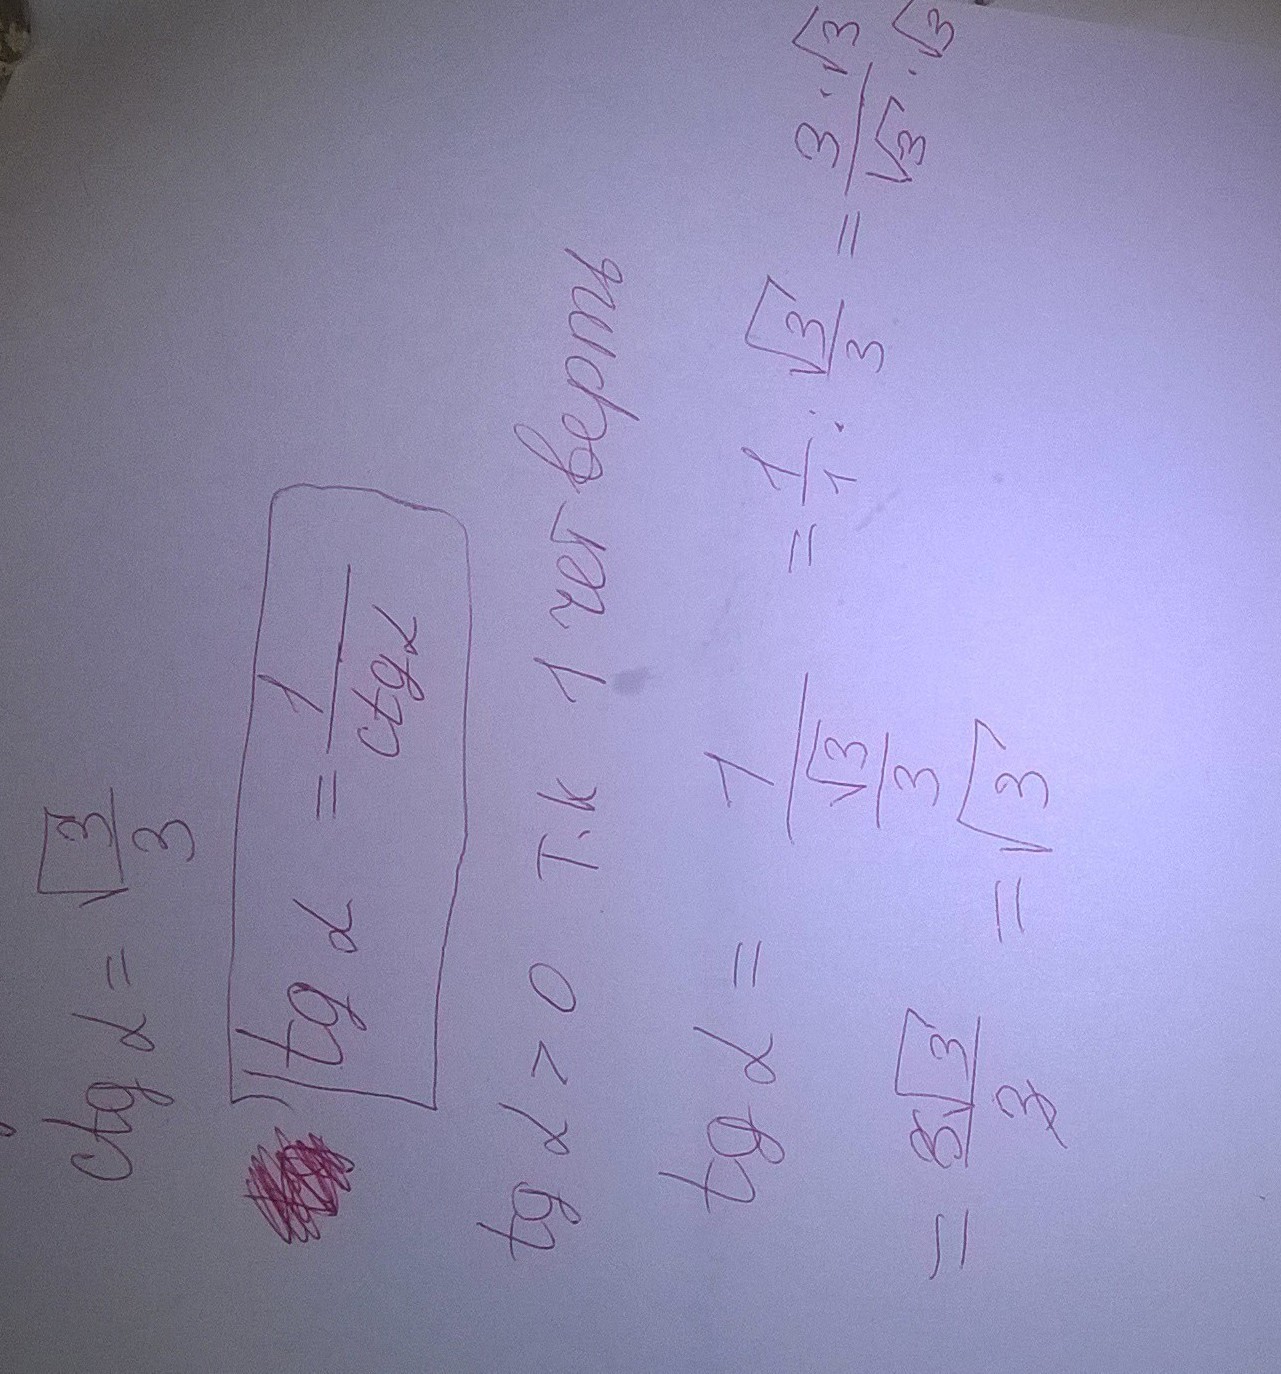 ctg α = √3/3
tg α = 1/ctg α
tg α > 0 т.к 1 четверть
tg α = 1/(√3/3) = 1/1 : √3/3 = 3·√3/√3·√3
= 3√3/3 = √3